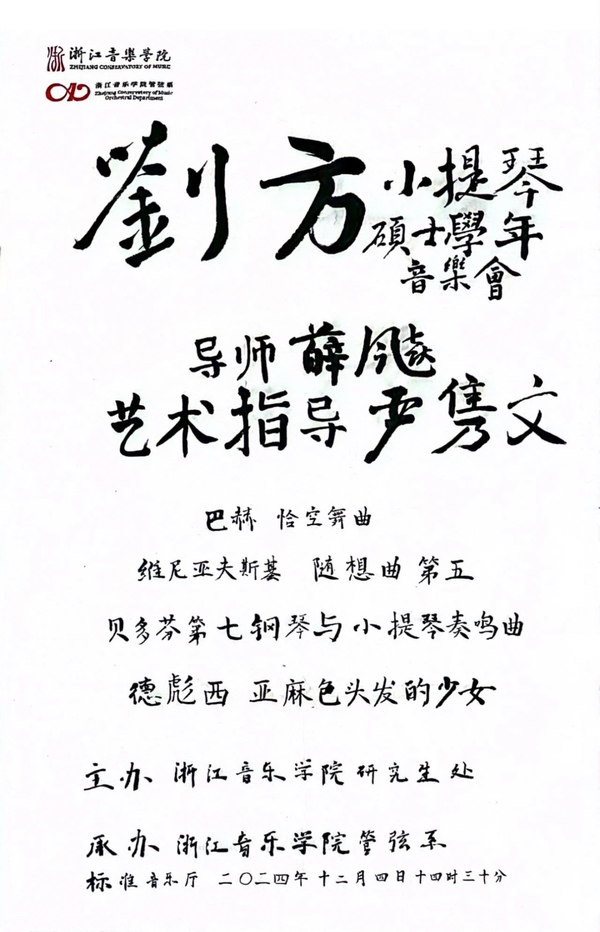 浙江音樂学院
ZHEJIANG CONSERVATORY OF MUSIC
浙江音乐学院管弦系
Zhejiang Conservatory of Music
Orchestral Department
劉方 小提琴
碩士學年
音樂會
导师 薛飚
艺术指导 严隽文
巴赫 恰空舞曲
维尼亚夫斯基 随想曲 第五
贝多芬第七钢琴与小提琴奏鸣曲
德彪西 亚麻色头发的少女
主办 浙江音乐学院研究生处
承办 浙江音乐学院管弦系
标准音乐厅 二〇二四年 十二月四日十四时三十分